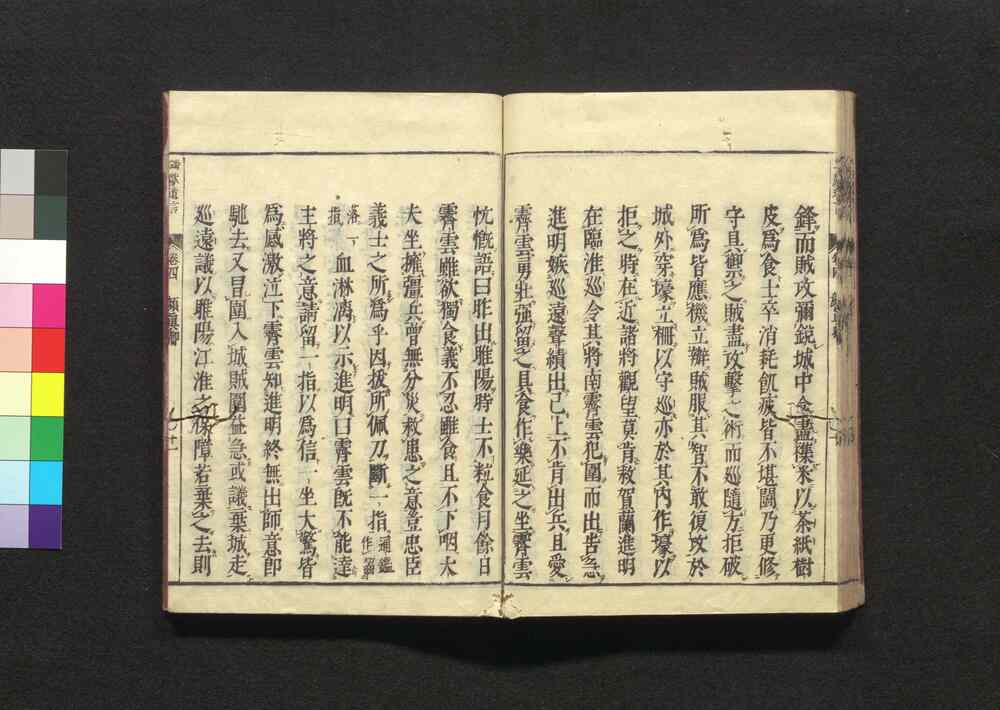 鋒而賊攻彌銳城中食盡襍米以茶紙樹
皮爲食士卒消耗飢疲皆不堪鬪乃更修
守具禦之賊盡攻擊之術而巡隨方拒破
所爲皆應機立辦賊服其智不敢復攻於
城外穿壕立柵以守巡亦於其內作壕以
拒之時在近諸將觀望莫肯救賀蘭進明
在臨淮巡令其將南霽雲犯圍而出告急
進明嫉巡遠聲績出己上不肯出兵且愛
霽雲勇壯强留之具食作樂延之坐霽雲
忼慨語曰昨出睢陽時士不粒食月餘日
霽雲雖欲獨食義不忍雖食且不下咽大
夫坐擁彊兵曾無分災救患之意豈忠臣
義士之所爲乎因拔所佩刀斷一指通鑑作齧
落一指血淋漓以示進明曰霽雲旣不能達
主將之意請留一指以爲信一坐大驚皆
爲感激泣下霽雲知進明終無出師意卽
馳去又冒圍入城賊圍益急或議棄城走
巡遠議以睢陽江淮之保障若棄之去則
卷四
顏眞卿
十一